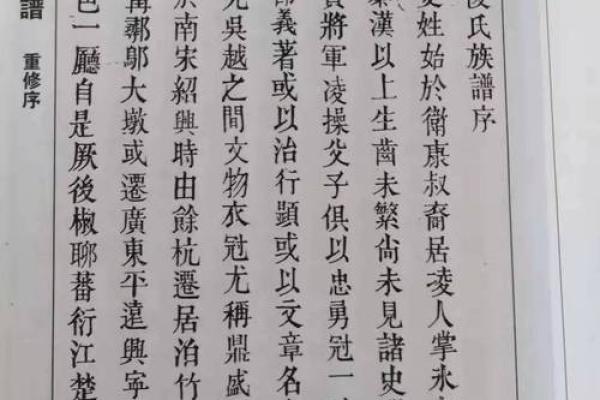 氏族譜序
姓始於衞康叔裔居凌人掌氷
秦漢以上生齒未繁尙未見諸史
將軍凌操父子俱以忠勇冠一
義著或以治行顯或以文章名
吳越之間文物衣冠尤稱鼎盛
於南宋紹興時由餘杭遷居泊竹
鄔大墩或遷廣東平遠興寧
一廳自是厥後椒聊蕃衍江楚
譜 重修序